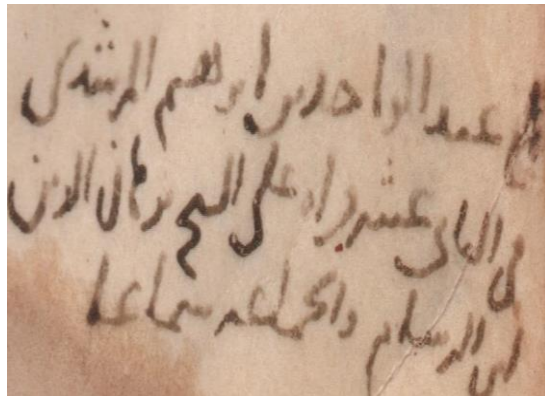 بلغ عبد الواحد بن ابراهيم المرشدي
في الثاني عشر قراه على الشيخ برهان الدين
ابن الرسام والجماعه سماعا